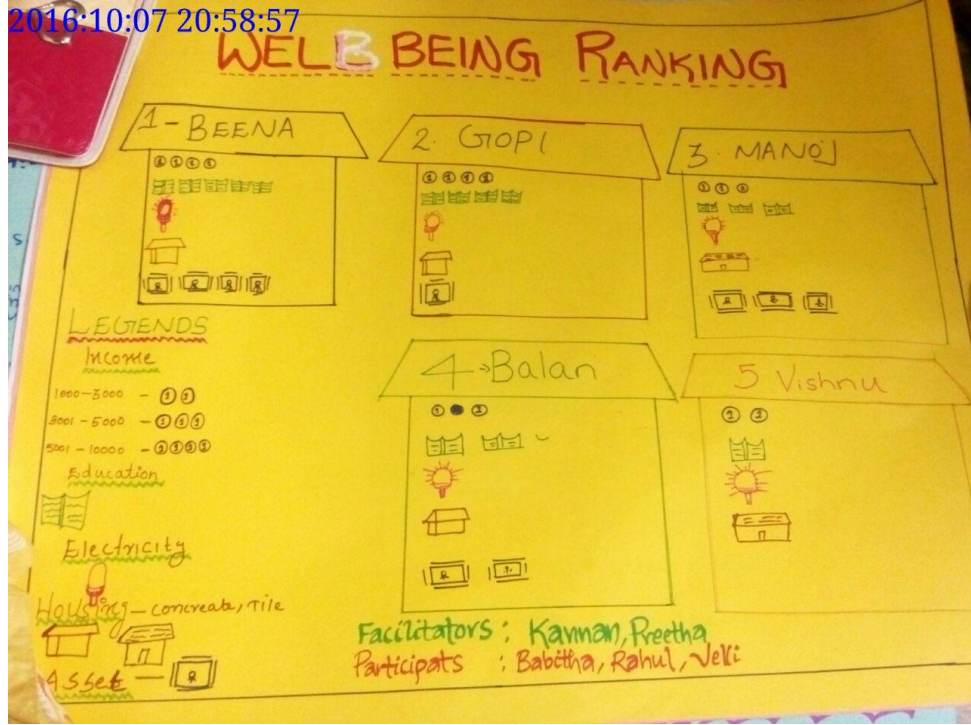 2016:10:07 20:58:57
WELL BEING RANKING
1-BEENA
2. GOPI
3. MANOJ
LEGENDS
Income
1000-3000 - ① ①
3001-5000 - ① ① ①
5001-10000 - ① ① ① ①
Education
Electricity
Housing - concreate, Tile
Asset -
4 Balan
5 Vishnu
Facilitators : Kannan, Preetha
Participats : Babitha, Rahul, Velli